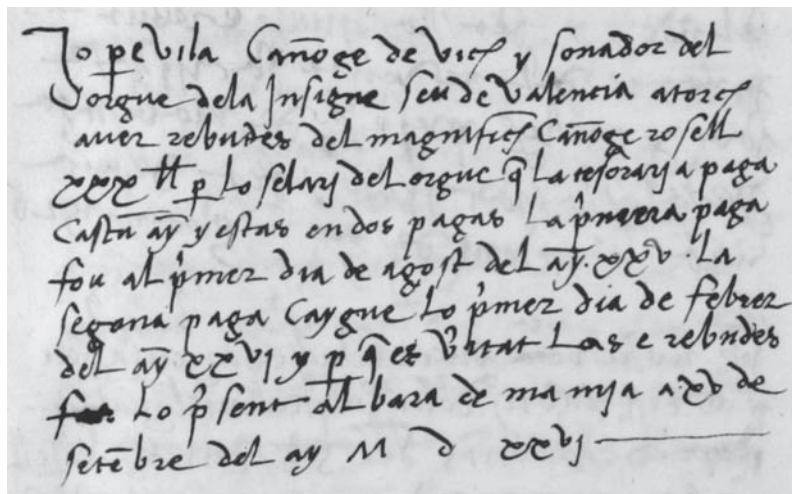 Jo pe vila Canoge de vich y sonador del
orgue dela Insigne seu de Valencia atorch
aver rebudes del magnifich Canoge rosell
xxx ll p lo selari del orgue q la tesoraria paga
Cascun ay y estas en dos pagas La pmera paga
fou al pmer dia de agost del ay. xxv. La
segona paga Caygue Lo pmer dia de febrer
del ay xxvj y p q es vitat Las e rebudes
Lo psent albara de ma mja a xv de
setebre del ay M d xxvj